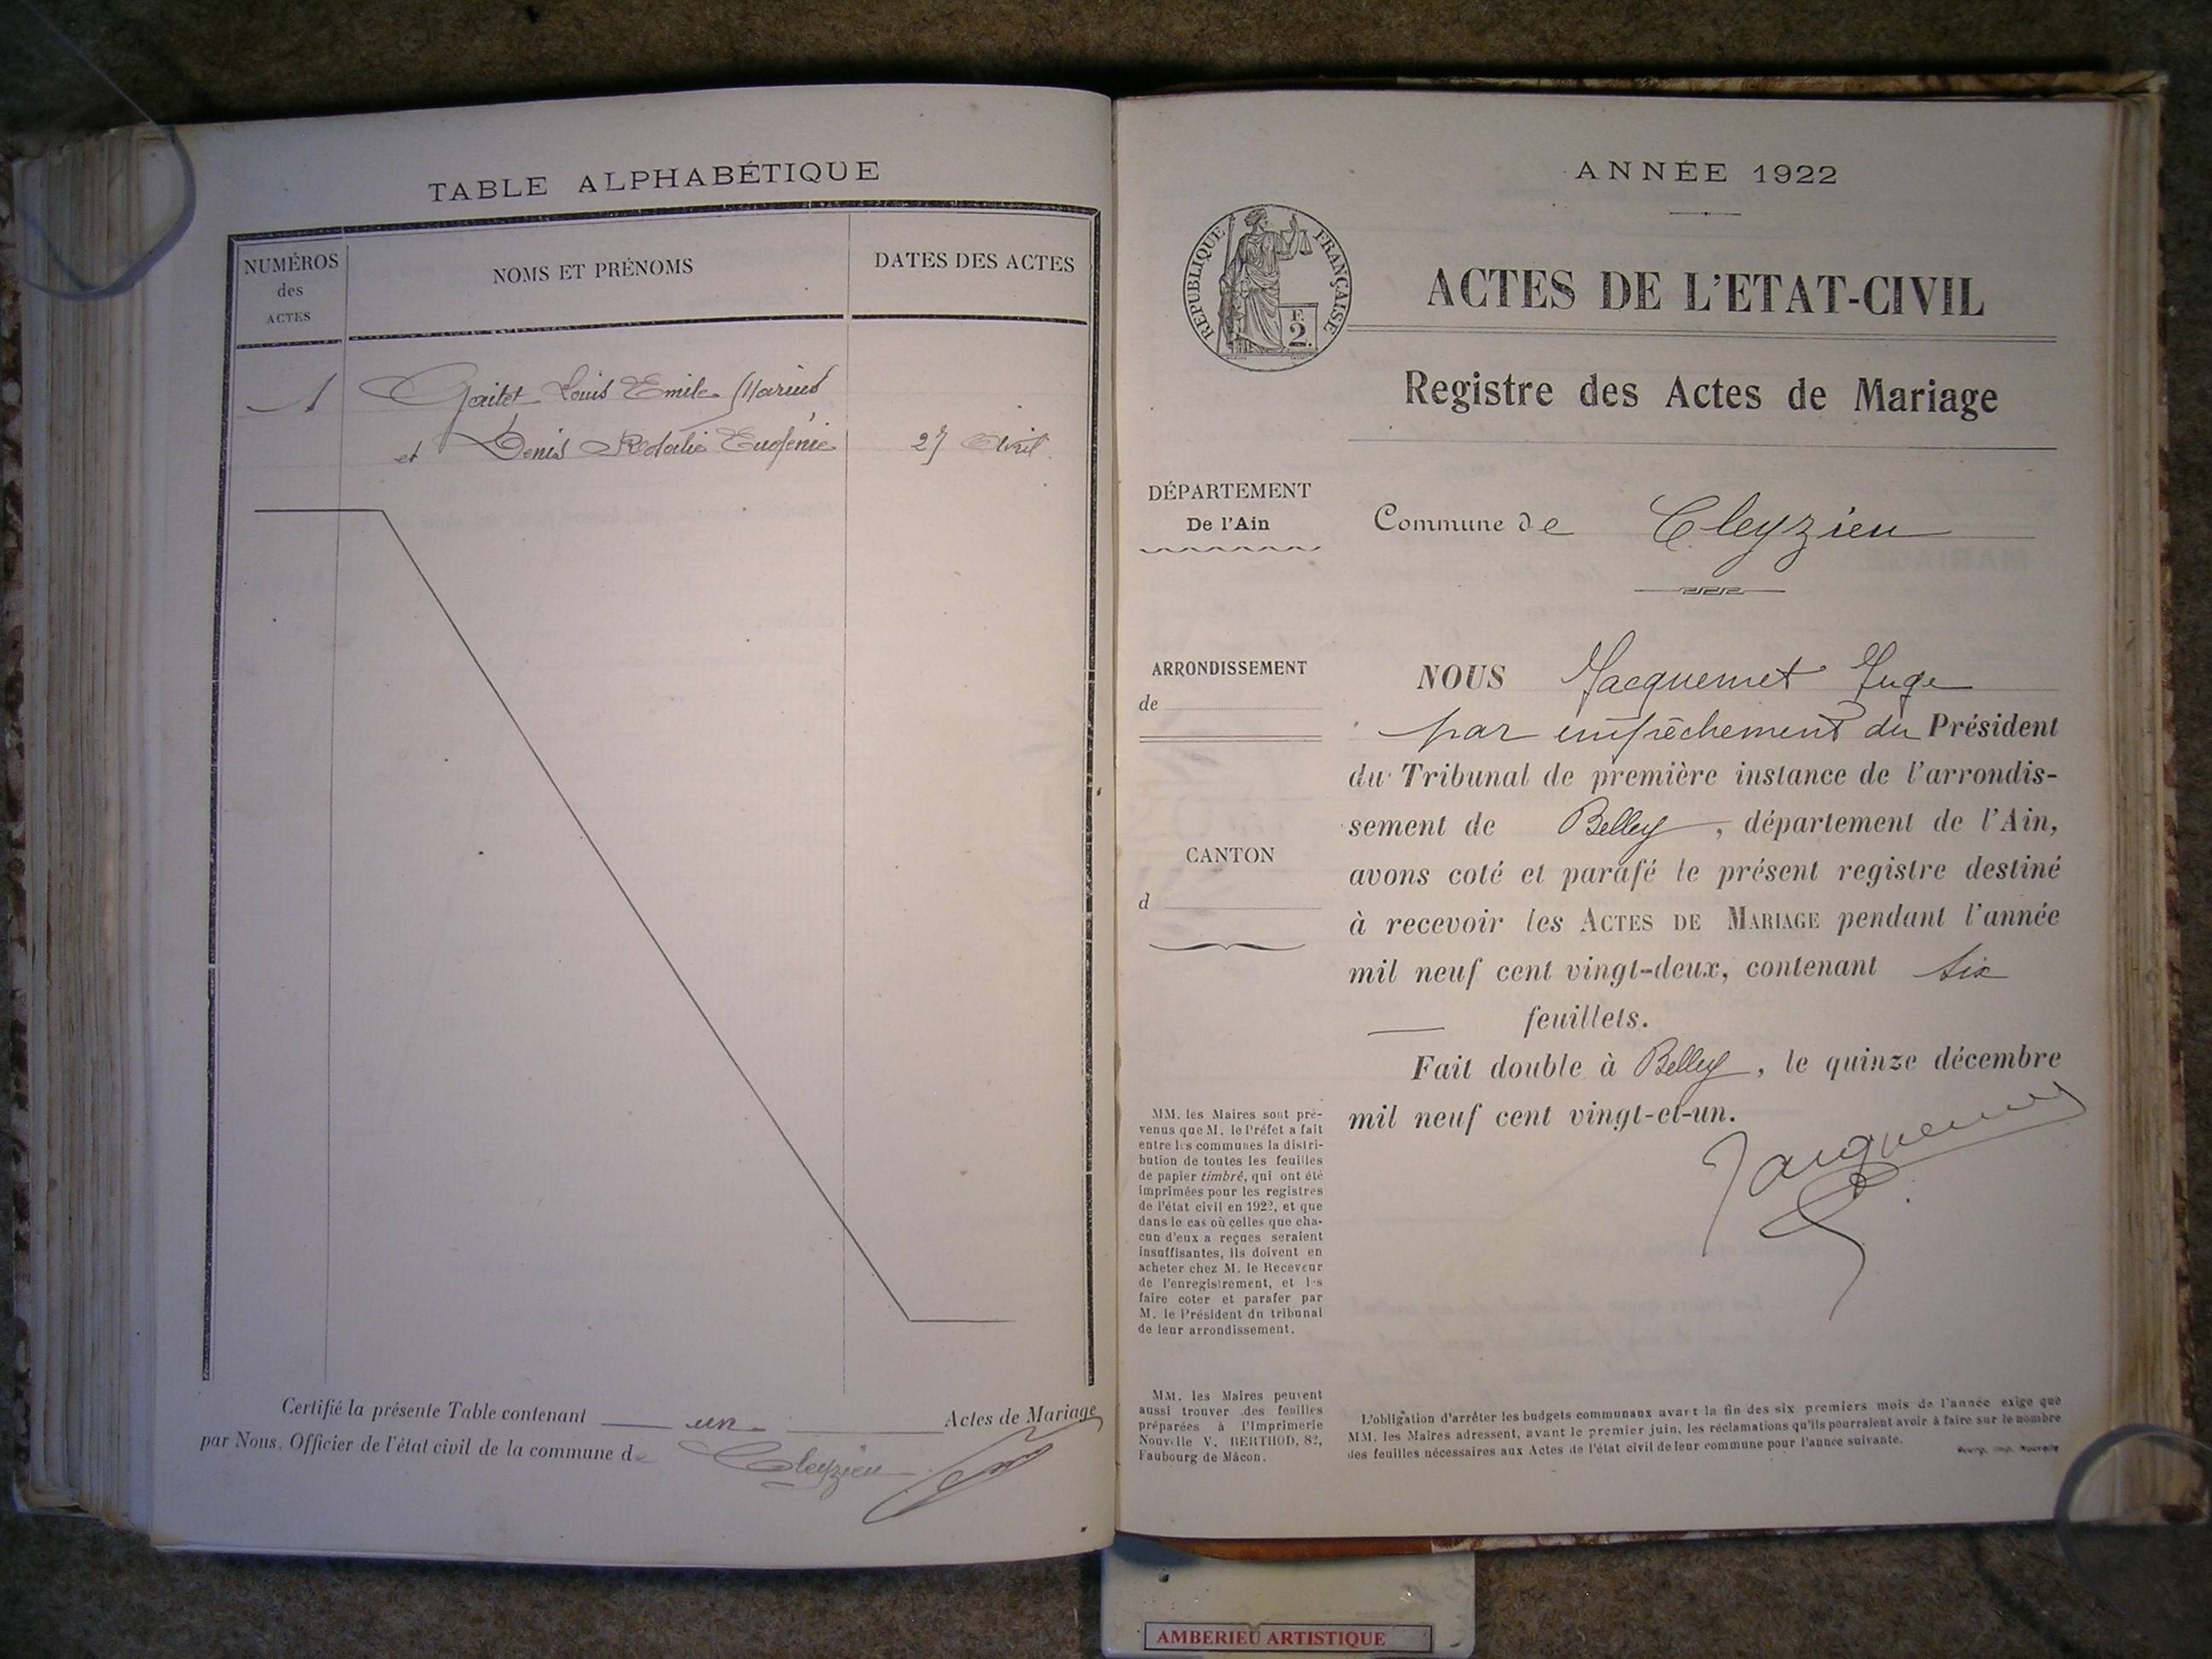 TABLE ALPHABÉTIQUE
NUMÉROS
des
ACTES
NOMS ET PRÉNOMS
DATES DES ACTES
1
Louis Emile Marius
et Denis Eugénie
27 Avril
Certifié la présente Table contenant un Actes de Mariage
par Nous, Officier de l'état civil de la commune de Cleyzieu
ANNÉE 1922
RÉPUBLIQUE FRANÇAISE
F.
2.
ACTES DE L'ETAT-CIVIL
Registre des Actes de Mariage
DÉPARTEMENT
De l'Ain
Commune de Cleyzieu
ARRONDISSEMENT
de
CANTON
d
NOUS Jacquemet Juge
par empêchement du Président
du Tribunal de première instance de l'arrondis-
sement de Belley, département de l'Ain,
avons coté et parafé le présent registre destiné
à recevoir les ACTES DE MARIAGE pendant l'année
mil neuf cent vingt-deux, contenant six
feuillets.
Fait double à Belley, le quinze décembre
mil neuf cent vingt-et-un.
Jacquemet
MM. les Maires sont pré-
venus que M. le Préfet a fait
entre les communes la distri-
bution de toutes les feuilles
de papier timbré, qui ont été
imprimées pour les registres
de l'état civil en 1922, et que
dans le cas où celles que cha-
cun d'eux a reçues seraient
insuffisantes, ils doivent en
acheter chez M. le Receveur
de l'enregistrement, et les
faire coter et parafer par
M. le Président du tribunal
de leur arrondissement.
MM. les Maires peuvent
aussi trouver des feuilles
préparées à l'Imprimerie
Nouvelle V. BERTHOD, 82,
Faubourg de Mâcon.
L'obligation d'arrêter les budgets communaux avant la fin des six premiers mois de l'année exige que
MM. les Maires adressent, avant le premier juin, les réclamations qu'ils pourraient avoir à faire sur le nombre
des feuilles nécessaires aux Actes de l'état civil de leur commune pour l'année suivante.
Bourg, Imp. Nouvelle
AMBERIEU ARTISTIQUE